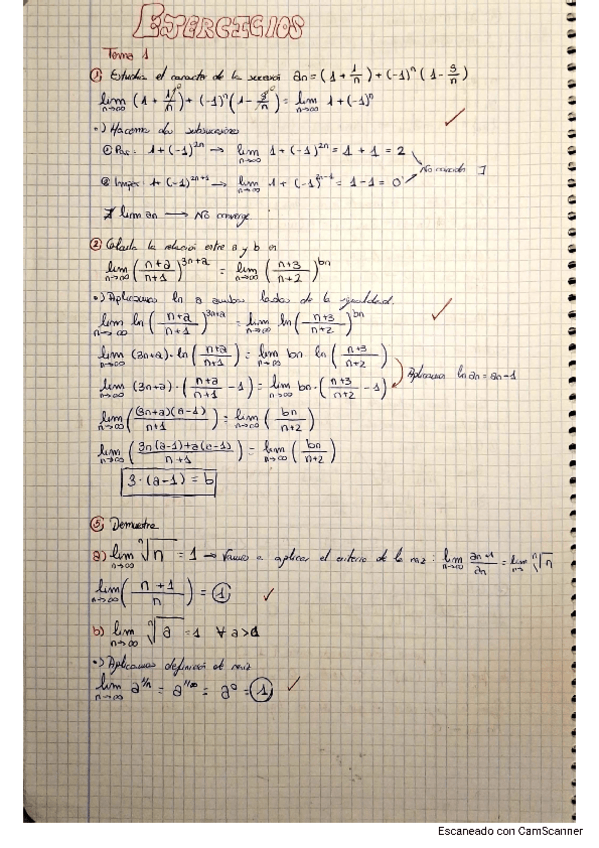 EJERCICIOS
Tema 1
① Estudia el caracter de la sucesión an = (1 + 1/n) + (-1)^n (1 - 3/n)
lim n→∞ (1 + 1/n) + (-1)^n (1 - 3/n) = lim n→∞ 1 + (-1)^n
•) Hacemos dos subsucesiones
① Par: 1 + (-1)^2n → lim n→∞ 1 + (-1)^2n = 1 + 1 = 2
No coinciden
② Impar: 1 + (-1)^2n+1 → lim n→∞ 1 + (-1)^2n-1 = 1 - 1 = 0
∄ lim an → No converge
② Calcula la relación entre a y b en
lim n→∞ (n+a / n+1)^3n+a = lim n→∞ (n+3 / n+2)^bn
•) Aplicamos ln a ambos lados de la igualdad.
lim n→∞ ln (n+a / n+1)^3n+a = lim n→∞ ln (n+3 / n+2)^bn
lim n→∞ (3n+a) · ln (n+a / n+1) = lim n→∞ bn · ln (n+3 / n+2)
Aplicamos ln an = an - 1
lim n→∞ (3n+a) · (n+a / n+1 - 1) = lim n→∞ bn · (n+3 / n+2 - 1)
lim n→∞ ((3n+a)(a-1) / n+1) = lim n→∞ (bn / n+2)
lim n→∞ (3n(a-1)+a(a-1) / n+1) = lim n→∞ (bn / n+2)
3 · (a-1) = b
⑤ Demuestra
a) lim n→∞ ⁿ√n = 1 → Vamos a aplicar el criterio de la raiz: lim n→∞ an+1 / an = lim n→ ⁿ√n
lim n→∞ (n+1 / n) = 1
b) lim n→∞ ⁿ√a = 1 ∀ a>
•) Aplicamos definición de raiz
lim n→∞ a^1/n = a^1/∞ = a^0 = 1
Escaneado con CamScanner